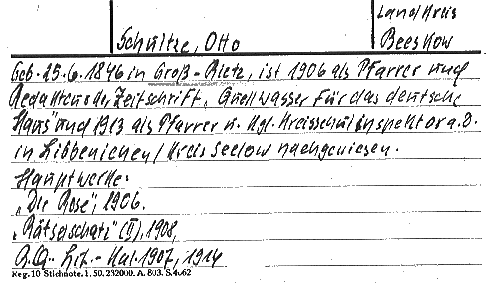 Landkreis
Schultze, Otto Beeskow
Geb. 25.6.1846 in Groß-Rietz, ist 1906 als Pfarrer und
Redakteur der Zeitschrift „Quellwasser für das deutsche
Haus" und 1913 als Pfarrer u. Kgl. Kreisschulinspektor a.D.
in Libbenichen/Kreis Seelow nachgewiesen.
Hauptwerke:
„Die Rose", 1906.
„Rätselschatz" (II), 1908,
B.Q.- Lit.- Kal. 1907, 1914
Reg. 10 Stichnote. 1. 50. 232000. A. 803. S. 4. 62